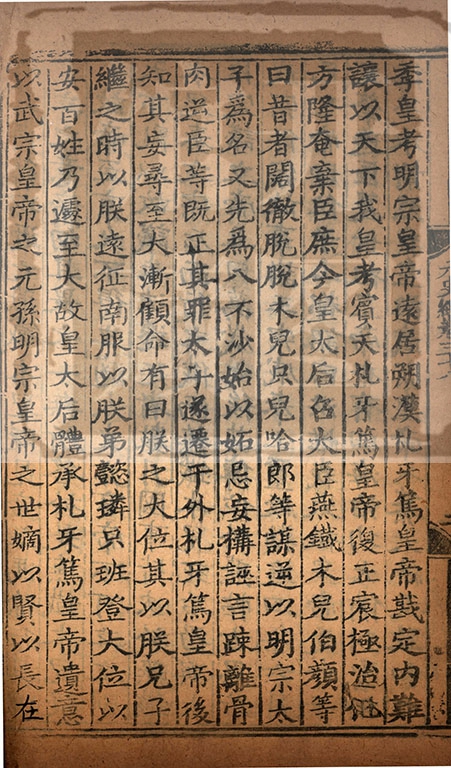 季皇考明宗皇帝遠居朔漠札牙篤皇帝戡定内難
讓以天下我皇考賔天札牙篤皇帝復正宸極治化
方隆奄棄臣庶今皇太后召大臣燕鐵木兒伯顔等
曰昔者闊徹脫脫木兒只兒哈郎等謀逆以明宗太
子爲名又先爲八不沙始以妬忌妄構誣言疎離骨
肉逆臣等旣正其罪太子遂遷于外札牙篤皇帝後
知其妄尋至大漸顧命有曰朕之大位其以朕兄子
繼之時以朕遠征南服以朕弟懿璘只班登大位以
安百姓乃遽至大故皇太后體承札牙篤皇帝遺意
以武宗皇帝之元孫明宗皇帝之世嫡以賢以長在